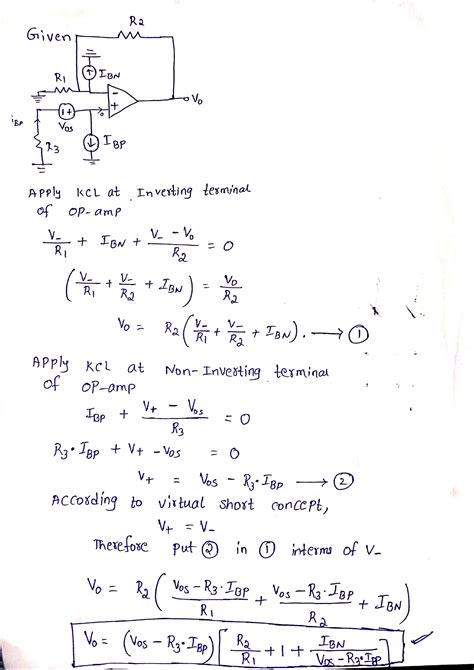 Given
R2
R1
IBN
-
+
Vo
iBP
1+
Vos
R3
IBP
Apply KCL at Inverting terminal
of OP-amp
V-/R1 + IBN + (V- - Vo)/R2 = 0
(V-/R1 + V-/R2 + IBN) = Vo/R2
Vo = R2(V-/R1 + V-/R2 + IBN). → ①
Apply KCL at Non-Inverting terminal
of OP-amp
IBP + (V+ - Vos)/R3 = 0
R3·IBP + V+ - Vos = 0
V+ = Vos - R3·IBP → ②
According to virtual short concept,
V+ = V-
Therefore put ② in ① interms of V-
Vo = R2((Vos - R3·IBP)/R1 + (Vos - R3·IBP)/R2 + IBN)
Vo = (Vos - R3·IBP)[R2/R1 + 1 + IBN/(Vos - R3·IBP)] ✓